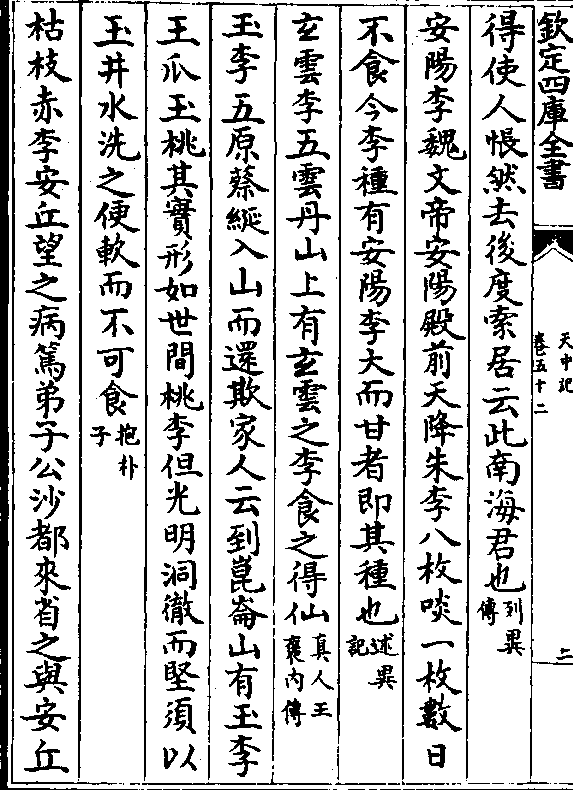 欽定四庫全書
天中記
卷五十二
二
得使人悵然去後度索居云此南海君也列異傳
安陽李魏文帝安陽殿前天降朱李八枚啖一枚數日
不食今李種有安陽李大而甘者即其種也述異記
玄雲李五雲丹山上有玄雲之李食之得仙真人王襃内傳
玉李五原蔡綖入山而還欺家人云到崑崙山有玉李
王瓜玉桃其實形如世間桃李但光明洞徹而堅須以
玉井水洗之便軟而不可食抱朴子
枯枝赤李安丘望之病篤弟子公沙都來省之與安丘